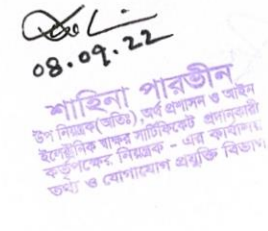 08.09.22
শাহিনা পারভীন
উপ নিয়ন্ত্রক(অতিঃ),অর্থ প্রশাসন ও আইন
ইলেক্ট্রনিক স্বাক্ষর সার্টিফিকেট প্রদানকারী
কর্তৃপক্ষের নিয়ন্ত্রক - এর কার্যালয়
তথ্য ও যোগাযোগ প্রযুক্তি বিভাগ